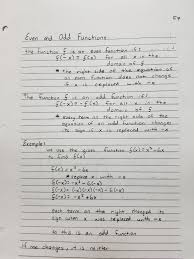 Even and Odd Functions
The function f is an even function if
f(-x) = f(x) for all x in the
domain of f
* The right side of the equation of
an even function does not change
if x is replaced with -x
The function f is an odd function if
f(-x) = -f(x) for all x in the
domain of f
* Every term on the right side of the
equation of an odd function changes
its sign if x is replaced with -x
Example 1
use the given function f(x) = x³ - 6x
to find f(-x)
f(x) = x³ - 6x
* replace x with -x
f(-x) = -x³ - 6(-x)
f(-x) = -x³ + 6x
Each term on the right changed its
sign when x was replaced with -x
so this is an odd function
If none changes, it is neither